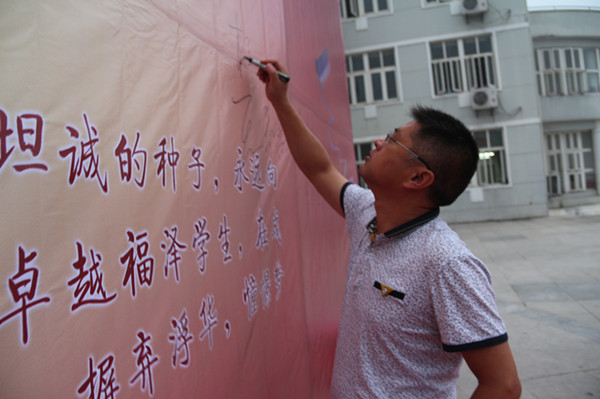 坦诚的种子，永远向
卓越福泽学生，在成
摒弃浮华，